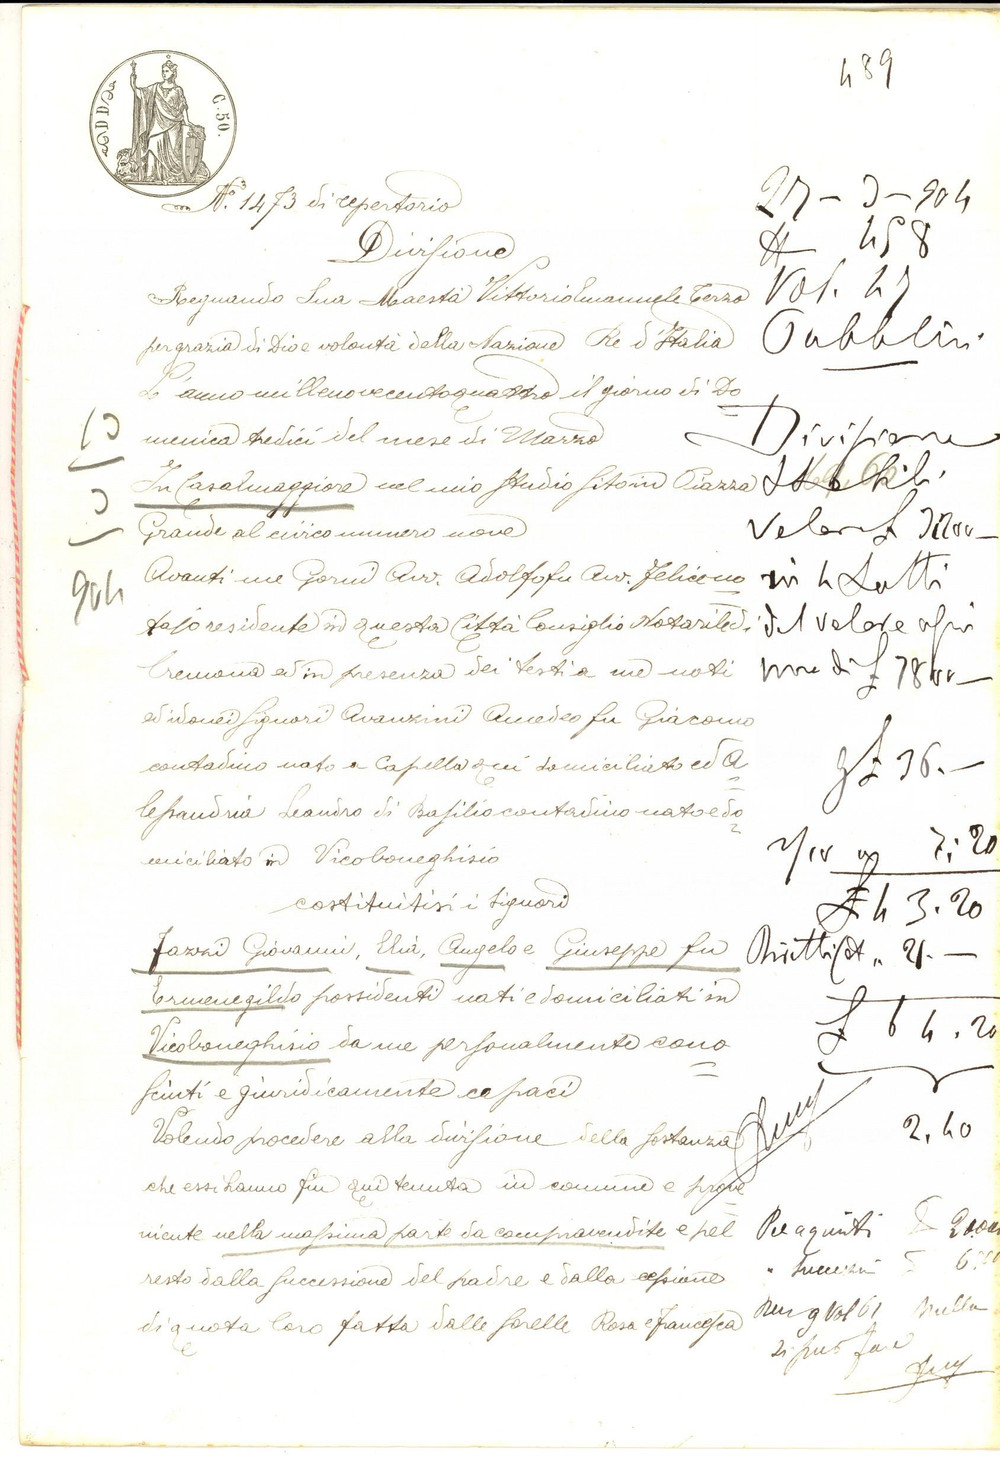 489
C. 50.
N.° 1473 di repertorio
Divisione
Regnando Sua Maestà Vittorio Emanuele Terzo
per grazia di Dio e volontà della Nazione Re d'Italia
L'anno millenovecentoquattro il giorno di Do
menica tredici del mese di Marzo
In Casalmaggiore nel mio studio sito in Piazza
Grande al civico numero nove
Avanti me Gorni Avv. Adolfo fu Avv. Felice no
tajo residente in questa Città Consiglio Notarile di
Cremona ed in presenza dei testi a me noti
ed idonei Signori Avanzini Amedeo fu Giacomo
contadino nato a Capella qui domiciliato ed A
lessandria Leandro di Basilio contadino nato e do
miciliato in Vicoboneghisio
costituitisi i Signori
Fazzi Giovanni, Elia, Angelo e Giuseppe fu
Ermenegildo possidenti nati e domiciliati in
Vicoboneghisio da me personalmente cono
sciuti e giuridicamente capaci
Volendo procedere alla divisione della sostanza
che essi hanno fin qui tenuta in comune e prove
niente nella massima parte da compravendite e pel
resto dalla successione del padre e dalla cessione
di quota loro fatta dalle sorelle Rosa e Francesca
13
3
904
27 - 3 - 904
# 458
Vol. 47
Pubblici
Divisione
Immobili
Valore £
in 4 Lotti
del valore
di £ 7800 -
£ 36. -
7.20
£ 43.20
21. -
£ 64.20
2.40